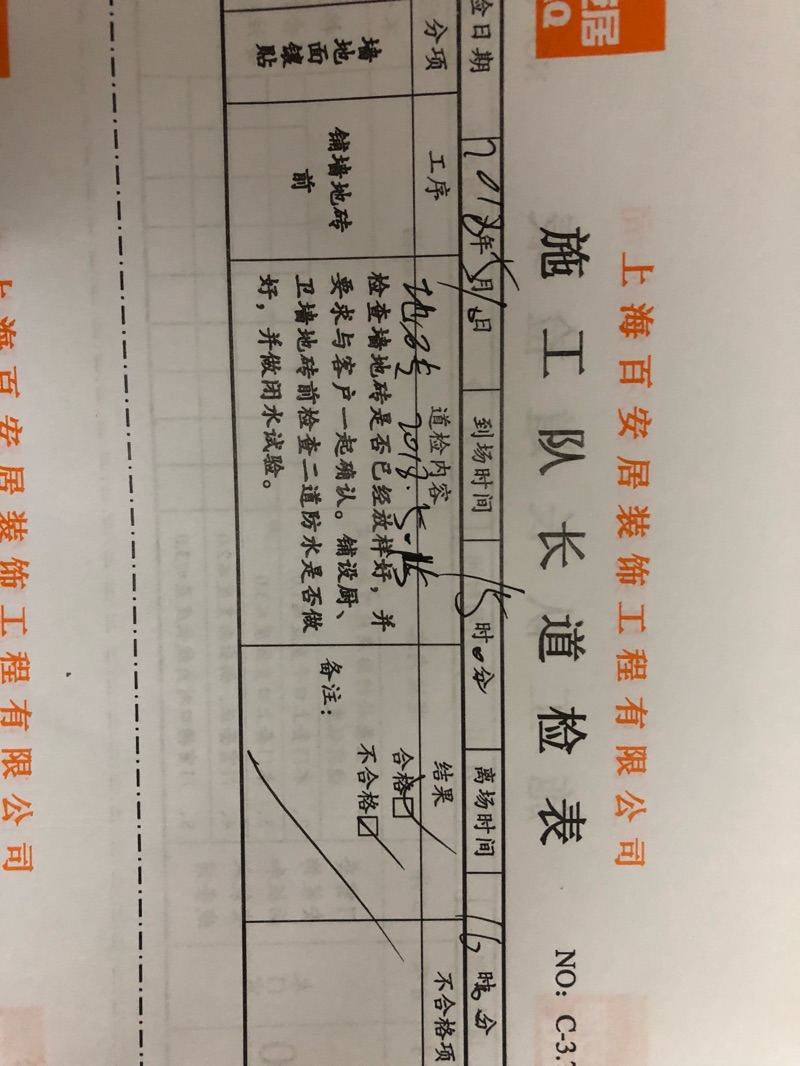 安居
上海百安居装饰工程有限公司
施工队长道检表
NO: C-3.
检日期 2018年5月1日 到场时间 15时0分 离场时间 16时0分
分项 工序 道检内容 结果 不合格项
墙地面镶贴
铺墙地砖前
2018.5.
检查墙地砖是否已经放样好，并
要求与客户一起确认。铺设厨、
卫墙地砖前检查二道防水是否做
好，并做闭水试验。
合格☑
不合格☑
备注：
上海百安居装饰工程有限公司